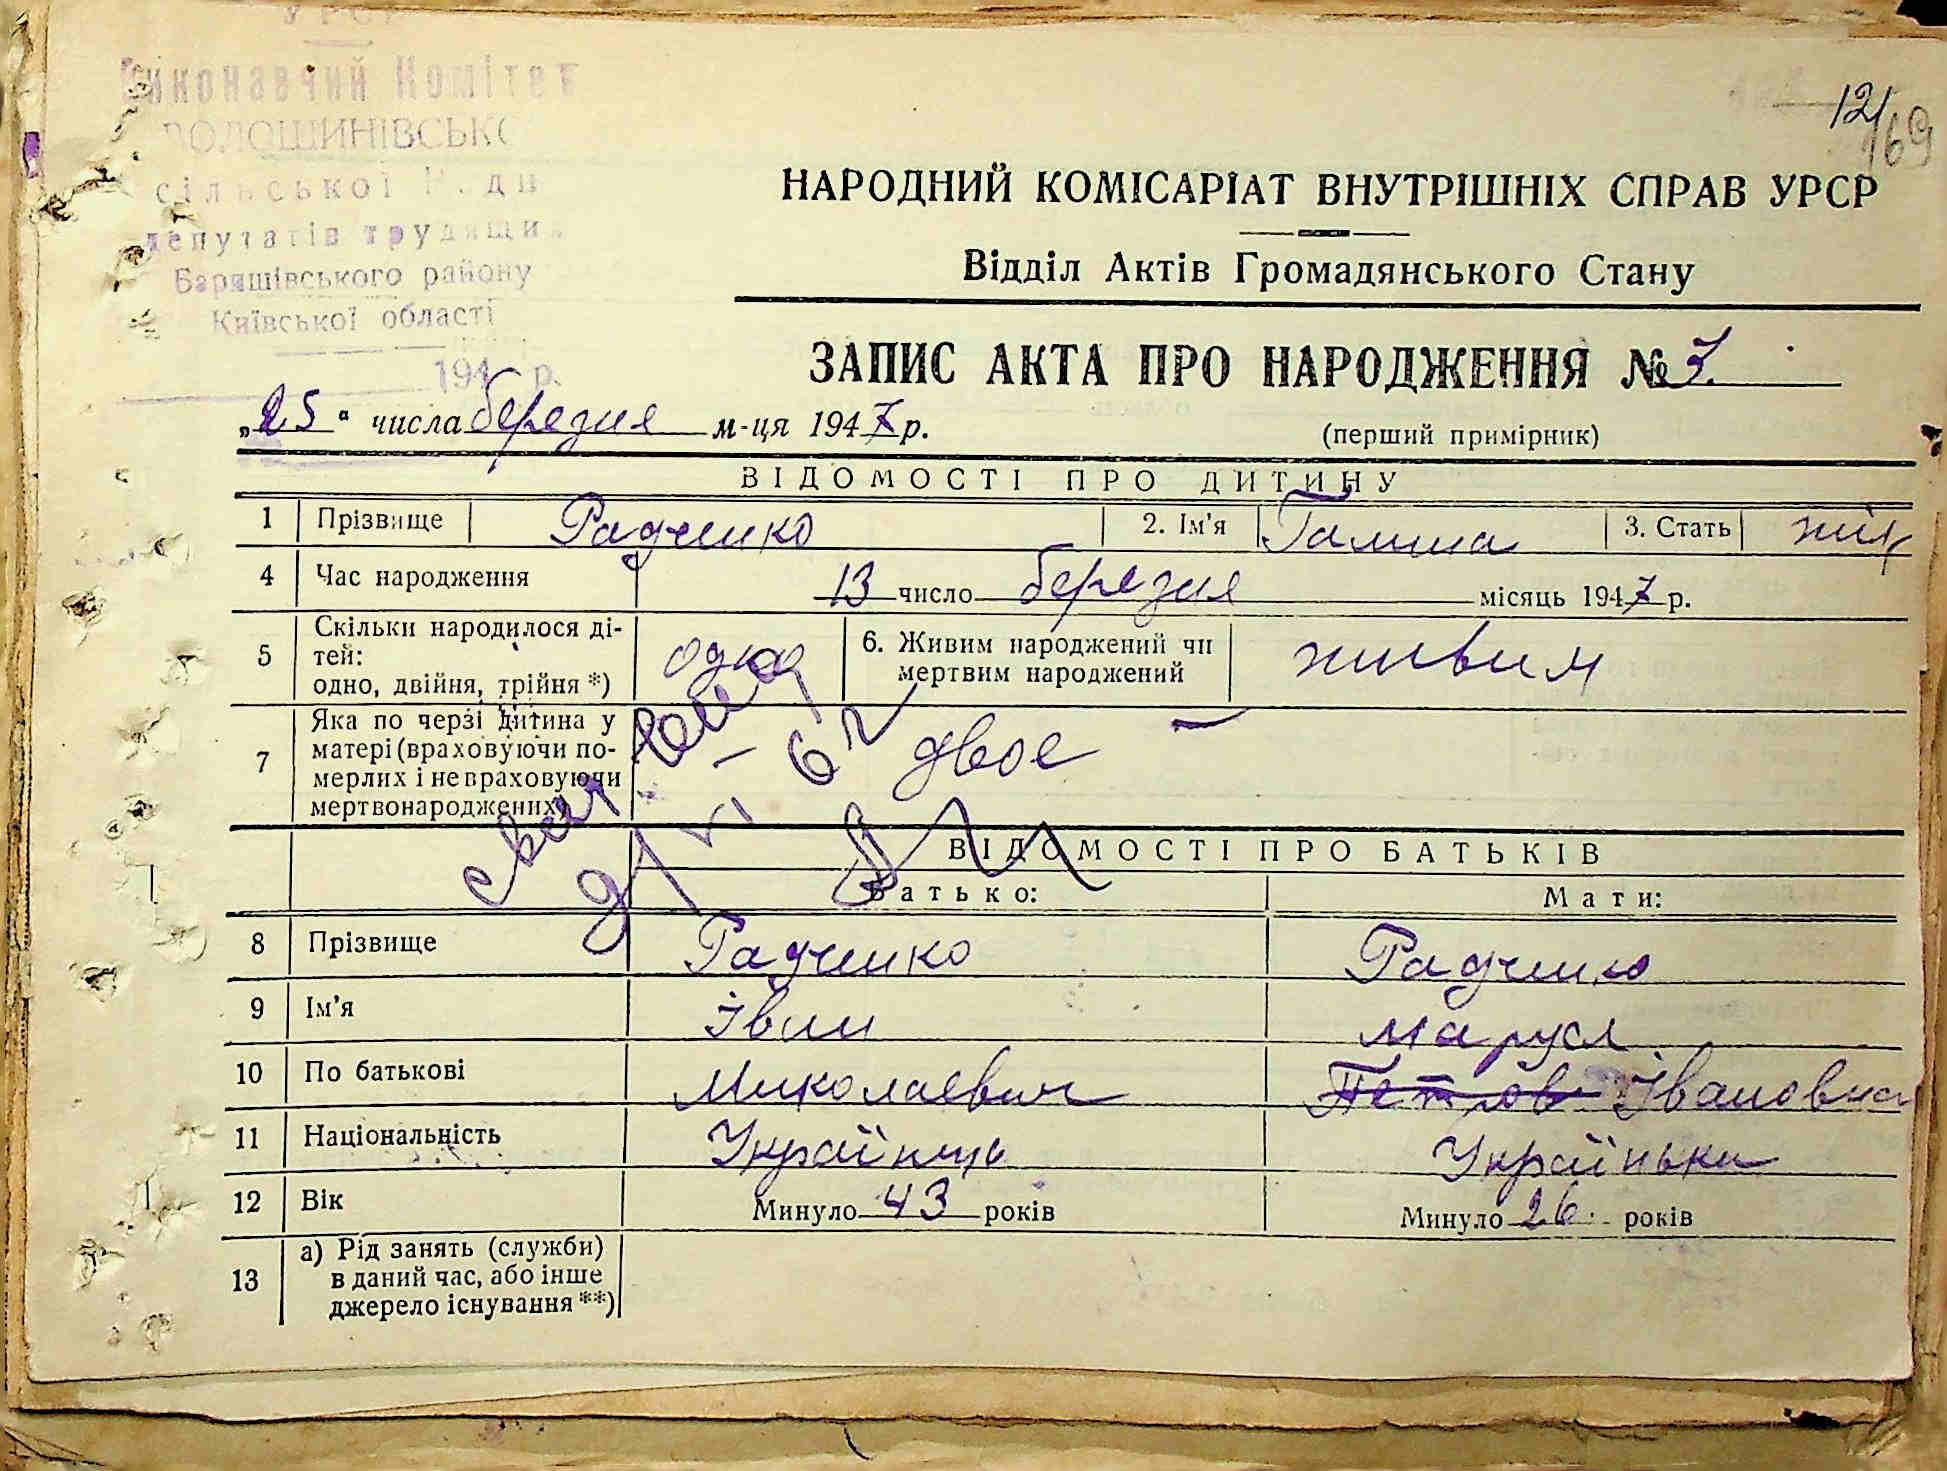 УРСР
Виконавчий Комітет
ВОЛОШИНІВСЬКО
сільської Ради
депутатів трудящих
Баришівського району
Київської області
194 р.
12
169
НАРОДНИЙ КОМІСАРІАТ ВНУТРІШНІХ СПРАВ УРСР
Відділ Актів Громадянського Стану
ЗАПИС АКТА ПРО НАРОДЖЕННЯ № 7.
„25“ числа березня м-ця 1947 р.
(перший примірник)
ВІДОМОСТІ ПРО ДИТИНУ
1 Прізвище Радченко 2. Ім'я Галина 3. Стать жін
4 Час народження 13 число березня місяць 1947 р.
5 Скільки народилося ді-
тей:
одно, двійня, трійня *) одно
6. Живим народжений чи
мертвим народжений живим
7 Яка по черзі дитина у
матері (враховуючи по-
мерлих і не враховуючи
мертвонароджених) двоє
ВІДОМОСТІ ПРО БАТЬКІВ
Батько: Мати:
8 Прізвище Радченко Радченко
9 Ім'я Іван Маруся
10 По батькові Миколаевич Петров Івановна
11 Національність Українець Українька
12 Вік Минуло 43 років Минуло 26. років
13 а) Рід занять (служби)
в даний час, або інше
джерело існування **)